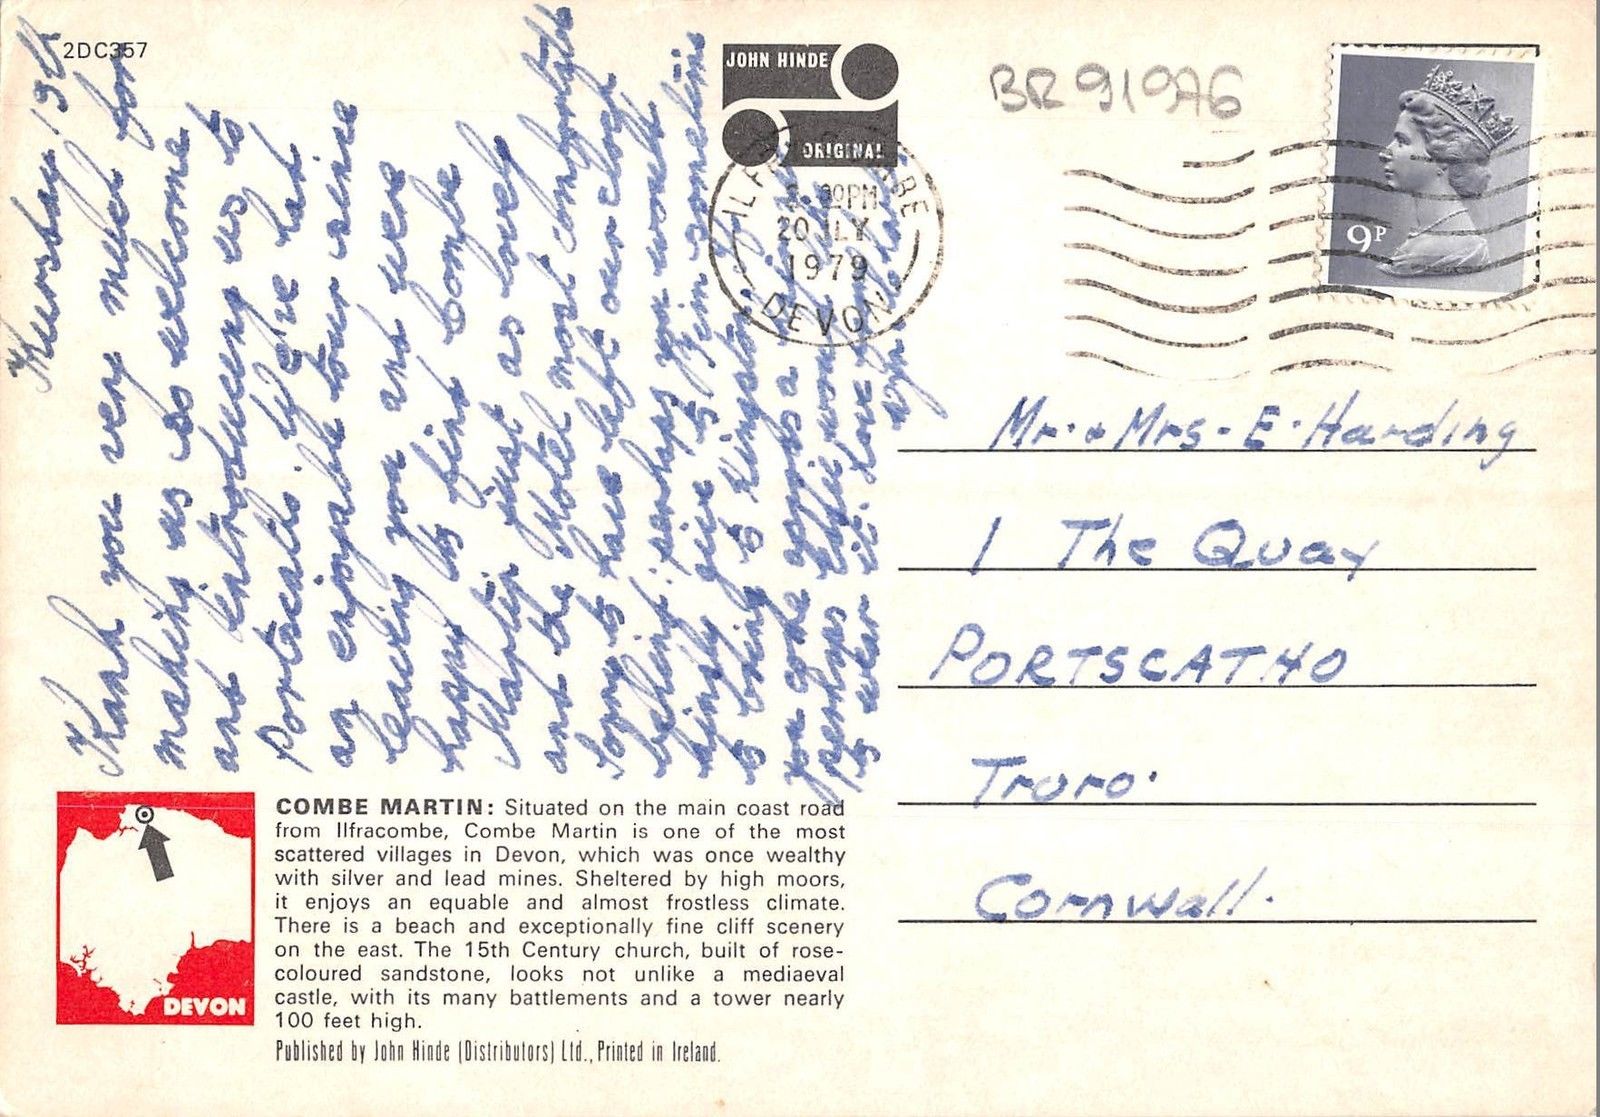 2DC357
JOHN HINDE
ORIGINAL
BR 91976
ILFRACOMBE
20 JLY
1979
DEVON
9P
Thursday 19th
Thank you very much for
making us so welcome
and introducing us to
Portscatho. We've had
an enjoyable tour since
leaving you and were
happy to find Combe
Martin just as lovely
and the Hotel most comfortable
Sorry to have left our clock
behind: perhaps you would
kindly give to Jim sometime
to bring to Kingston. I
you some
perhaps Edie would
to wear it. Love
Mr. & Mrs. E. Harding
1 The Quay
PORTSCATHO
Truro.
Cornwall.
COMBE MARTIN: Situated on the main coast road
from Ilfracombe, Combe Martin is one of the most
scattered villages in Devon, which was once wealthy
with silver and lead mines. Sheltered by high moors,
it enjoys an equable and almost frostless climate.
There is a beach and exceptionally fine cliff scenery
on the east. The 15th Century church, built of rose-
coloured sandstone, looks not unlike a mediaeval
castle, with its many battlements and a tower nearly
100 feet high.
DEVON
Published by John Hinde (Distributors) Ltd., Printed in Ireland.